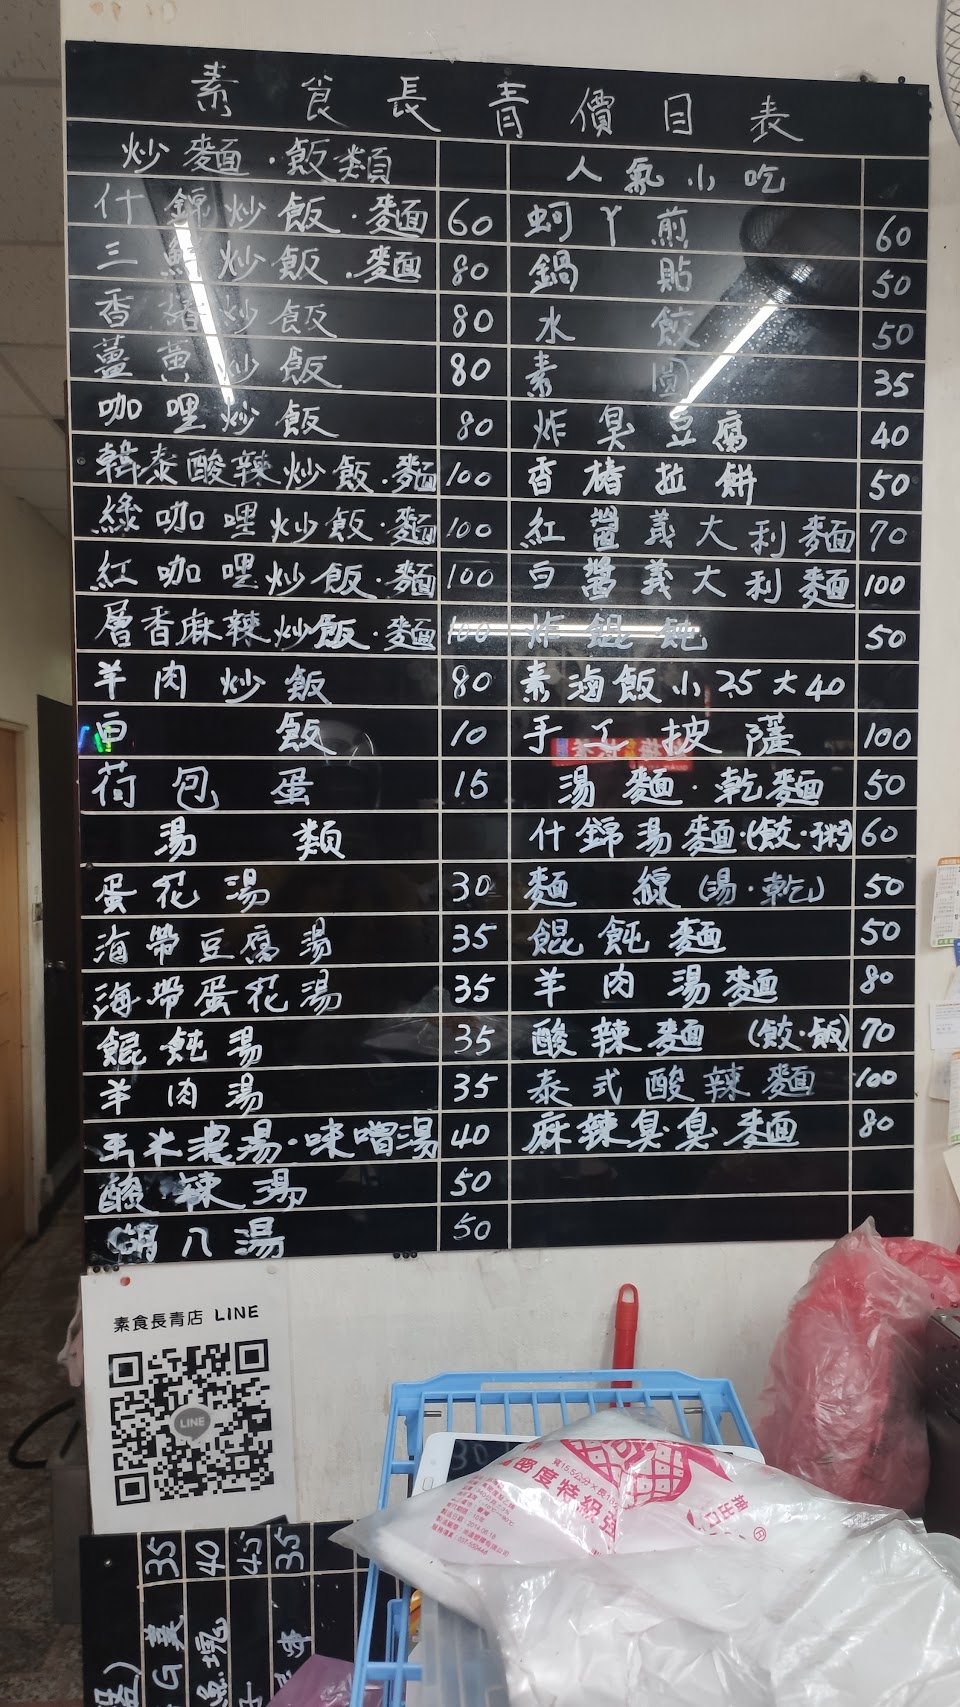 素食長青價目表
炒麵.飯類
什錦炒飯.麵 60
三鮮炒飯.麵 80
香椿炒飯 80
薑黃炒飯 80
咖哩炒飯 80
韓泰酸辣炒飯.麵 100
綠咖哩炒飯.麵 100
紅咖哩炒飯.麵 100
層香麻辣炒飯.麵 100
羊肉炒飯 80
白飯 10
荷包蛋 15
湯類
蛋花湯 30
海帶豆腐湯 35
海帶蛋花湯 35
餛飩湯 35
羊肉湯 35
玉米濃湯.味噌湯 40
酸辣湯 50
湯 50
人氣小吃
蚵丫煎 60
鍋貼 50
水餃 50
素圓 35
炸臭豆腐 40
香椿拉餅 50
紅醬義大利麵 70
白醬義大利麵 100
炸餛飩 50
素滷飯小25大40
手工披薩 100
湯麵.乾麵 50
什錦湯麵.(餃.粥) 60
麵線(湯.乾) 50
餛飩麵 50
羊肉湯麵 80
酸辣麵 (餃.飯) 70
泰式酸辣麵 100
麻辣臭臭麵 80
素食長青店 LINE
LINE
35
40
45
35
密度特級
抽出